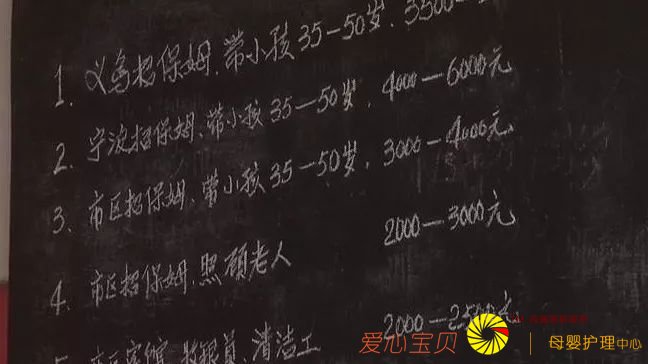 1. 义乌招保姆、带小孩35-50岁、3500-
2. 宁波招保姆、带小孩35-50岁、4000-6000元
3. 市区招保姆、带小孩35-50岁、3000-4000元
4. 市区招保姆、照顾老人 2000-3000元
市区宾馆、收银员、清洁工 2000-2500元
爱心宝贝 母婴护理中心